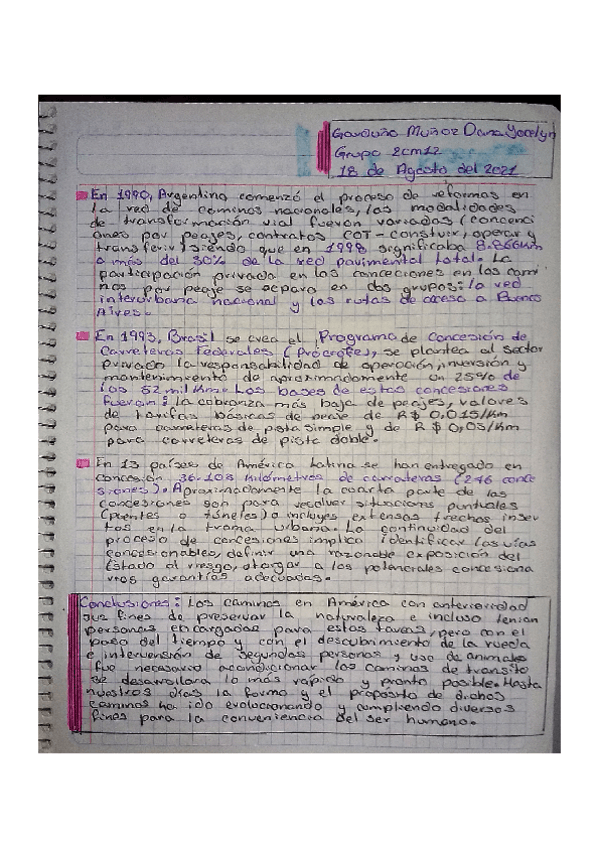 Garduño Muñoz Dana Yocelyn
Grupo 2cm12
18 de Agosto del 2021
En 1990, Argentina comenzó el proceso de reformas en
la red de caminos nacionales, las modalidades
de transformación vial fueron variadas (concenci
ones por peajes, contratos COT-construir, operar y
transferir) siendo que en 1998 significaba 8.866km
o más del 30% de la red pavimental total. La
participación privada en las conceciones en los cami
nos por peaje se separa en dos grupos: la red
interurbana nacional y las rutas de acceso a Buenos
Aires.
En 1993, Brasil se crea el Programa de Concesión de
Carreteras Federales (Procrofe), se plantea al sector
privado la responsabilidad de operación, inversión y
mantenimiento de aproximadamente un 25% de
los 52 mil Km. Las bases de estas concesiones
fueron: la cobranza más baja de peajes, valores
de tarifas básicas de peaje de R$ 0,015/km
para carreteras de pista simple y de R$ 0,03/km
para carreteras de pista doble.
En 13 países de América Latina se han entregado en
concesión 36.103 kilómetros de carreteras (276 conce
siones). Aproximadamente la cuarta parte de las
concesiones son para resolver situaciones puntuales
(puentes o túneles) o incluyes extensos trechos inser
tos en la trama urbana. La continuidad del
proceso de concesiones implica identificar las vías
concesionables, definir una razonable exposición del
Estado al riesgo, otorgar a los potenciales concesiona
rios garantías adecuadas.
Conclusiones: Los caminos en América con anterioridad
sus fines de preservar la naturaleza e incluso tenian
personas encargadas para estas tareas, pero con el
paso del tiempo y con el descubrimiento de la rueda
e intervensión de segundas personas y uso de animales
fue necesario acondicionar los caminos de transito
se desarrollara lo más rapido y pronto posible. Hasta
nuestros dias la forma y el proposito de dichos
caminos ha ido evolucionando y cumpliendo diversos
fines para la conveniencia del ser humano.